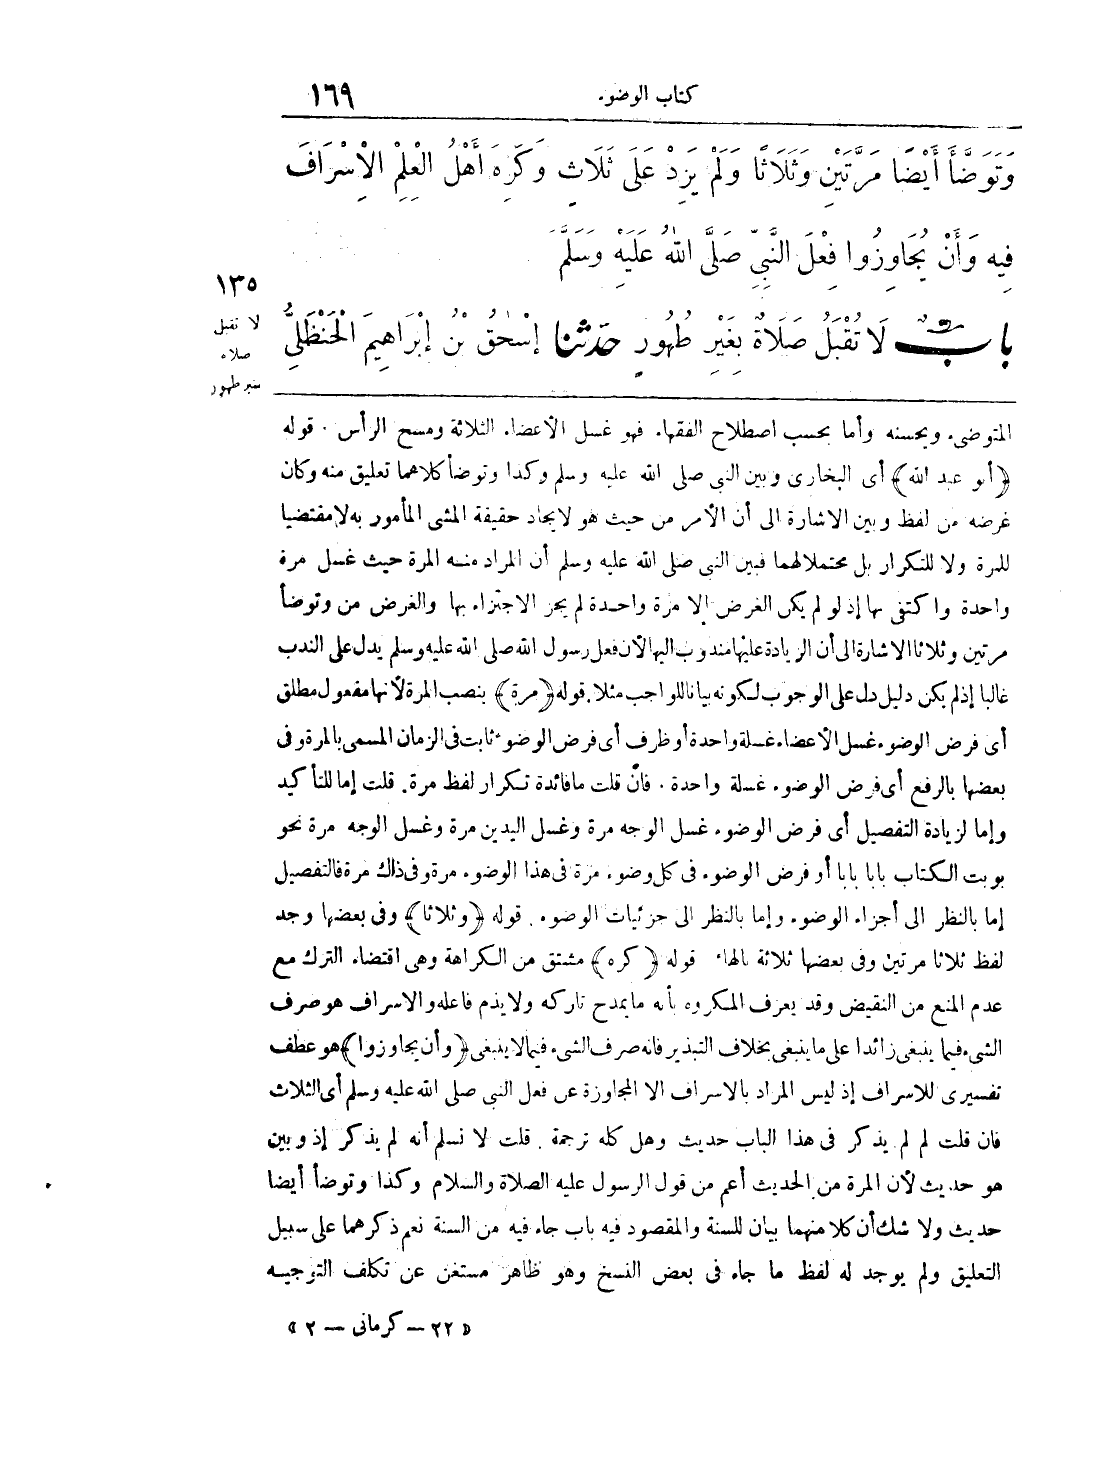 كتاب الوضوء
١٦٩
وَتَوَضَّأَ أَيْضًا مَرَّتَيْنِ وَثَلَاثًا وَلَمْ يَزِدْ عَلَى ثَلَاثٍ وَكَرِهَ أَهْلُ الْعِلْمِ الْإِسْرَافَ
فِيهِ وَأَنْ يُجَاوِزُوا فِعْلَ النَّبِيِّ صَلَّى اللهُ عَلَيْهِ وَسَلَّمَ
بابٌ لَا تُقْبَلُ صَلَاةٌ بِغَيْرِ طُهُورٍ حَدَّثَنا إِسْحَقُ بْنُ إِبْرَاهِيمَ الْحَنْظَلِيُّ
١٣٥
لا تقبل
صلاه
بغير طهور
المتوضىء ويحسنه وأما بحسب اصطلاح الفقهاء فهو غسل الأعضاء الثلاثة ومسح الرأس . قوله
﴿أبو عبد الله﴾ أى البخارى وبين النبي صلى الله عليه وسلم وكذا وتوضأ كلاهما تعليق منه وكان
غرضه من لفظ وبين الاشارة الى أن الأمر من حيث هو لايجاد حقيقة الشىء المأمور به لا مقتضيا
للمرة ولا للتكرار بل محتملا لهما فبين النبي صلى الله عليه وسلم أن المراد منه المرة حيث غسل مرة
واحدة واكتفى بها إذ لو لم يكن الغرض إلا مرة واحدة لم يجز الاجتزاء بها والغرض من وتوضأ
مرتين وثلاثا الاشارة الى أن الزيادة عليها مندوب اليها لأن فعل رسول الله صلى الله عليه وسلم يدل على الندب
غالبا إذ لم يكن دليل دل على الوجوب لكونه بيانا للواجب مثلا . قوله ﴿مرة﴾ بنصب المرة لأنها مفعول مطلق
أى فرض الوضوء غسل الأعضاء غسلة واحدة أو ظرف أى فرض الوضوء ثابت فى الزمان المسمى بالمرة وفى
بعضها بالرفع أى فرض الوضوء غسلة واحدة . فان قلت ما فائدة تكرار لفظ مرة . قلت إما للتأكيد
وإما لزيادة التفصيل أى فرض الوضوء غسل الوجه مرة وغسل اليدين مرة وغسل الوجه مرة نحو
بوبت الكتاب بابا بابا أو فرض الوضوء فى كل وضوء مرة فى هذا الوضوء مرة وفى ذاك مرة فالتفصيل
إما بالنظر الى أجزاء الوضوء وإما بالنظر الى جزئيات الوضوء . قوله ﴿وثلاثا﴾ وفى بعضها وجد
لفظ ثلاثا مرتين وفى بعضها ثلاثة بالهاء قوله ﴿كره﴾ مشتق من الكراهة وهى اقتضاء الترك مع
عدم المنع من النقيض وقد يعرف المكروه بأنه ما يمدح تاركه ولا يذم فاعله والاسراف هو صرف
الشىء فيما ينبغى زائدا على ما ينبغى بخلاف التبذير فانه صرف الشىء فيما لا ينبغى ﴿وأن يجاوزوا﴾ هو عطف
تفسيرى للاسراف إذ ليس المراد بالاسراف الا المجاوزة عن فعل النبي صلى الله عليه وسلم أى الثلاث
فان قلت لم لم يذكر فى هذا الباب حديث وهل كله ترجمة . قلت لا نسلم أنه لم يذكر إذ وبين
هو حديث لأن المرة من الحديث أعم من قول الرسول عليه الصلاة والسلام وكذا وتوضأ أيضا
حديث ولا شك أن كلا منهما بيان للسنة والمقصود فيه باب جاء فيه من السنة نعم ذكرهما على سبيل
التعليق ولم يوجد له لفظ ما جاء فى بعض النسخ وهو ظاهر مستغن عن تكلف التوجيه
« ٢٢ – كرمانى – ٢ »